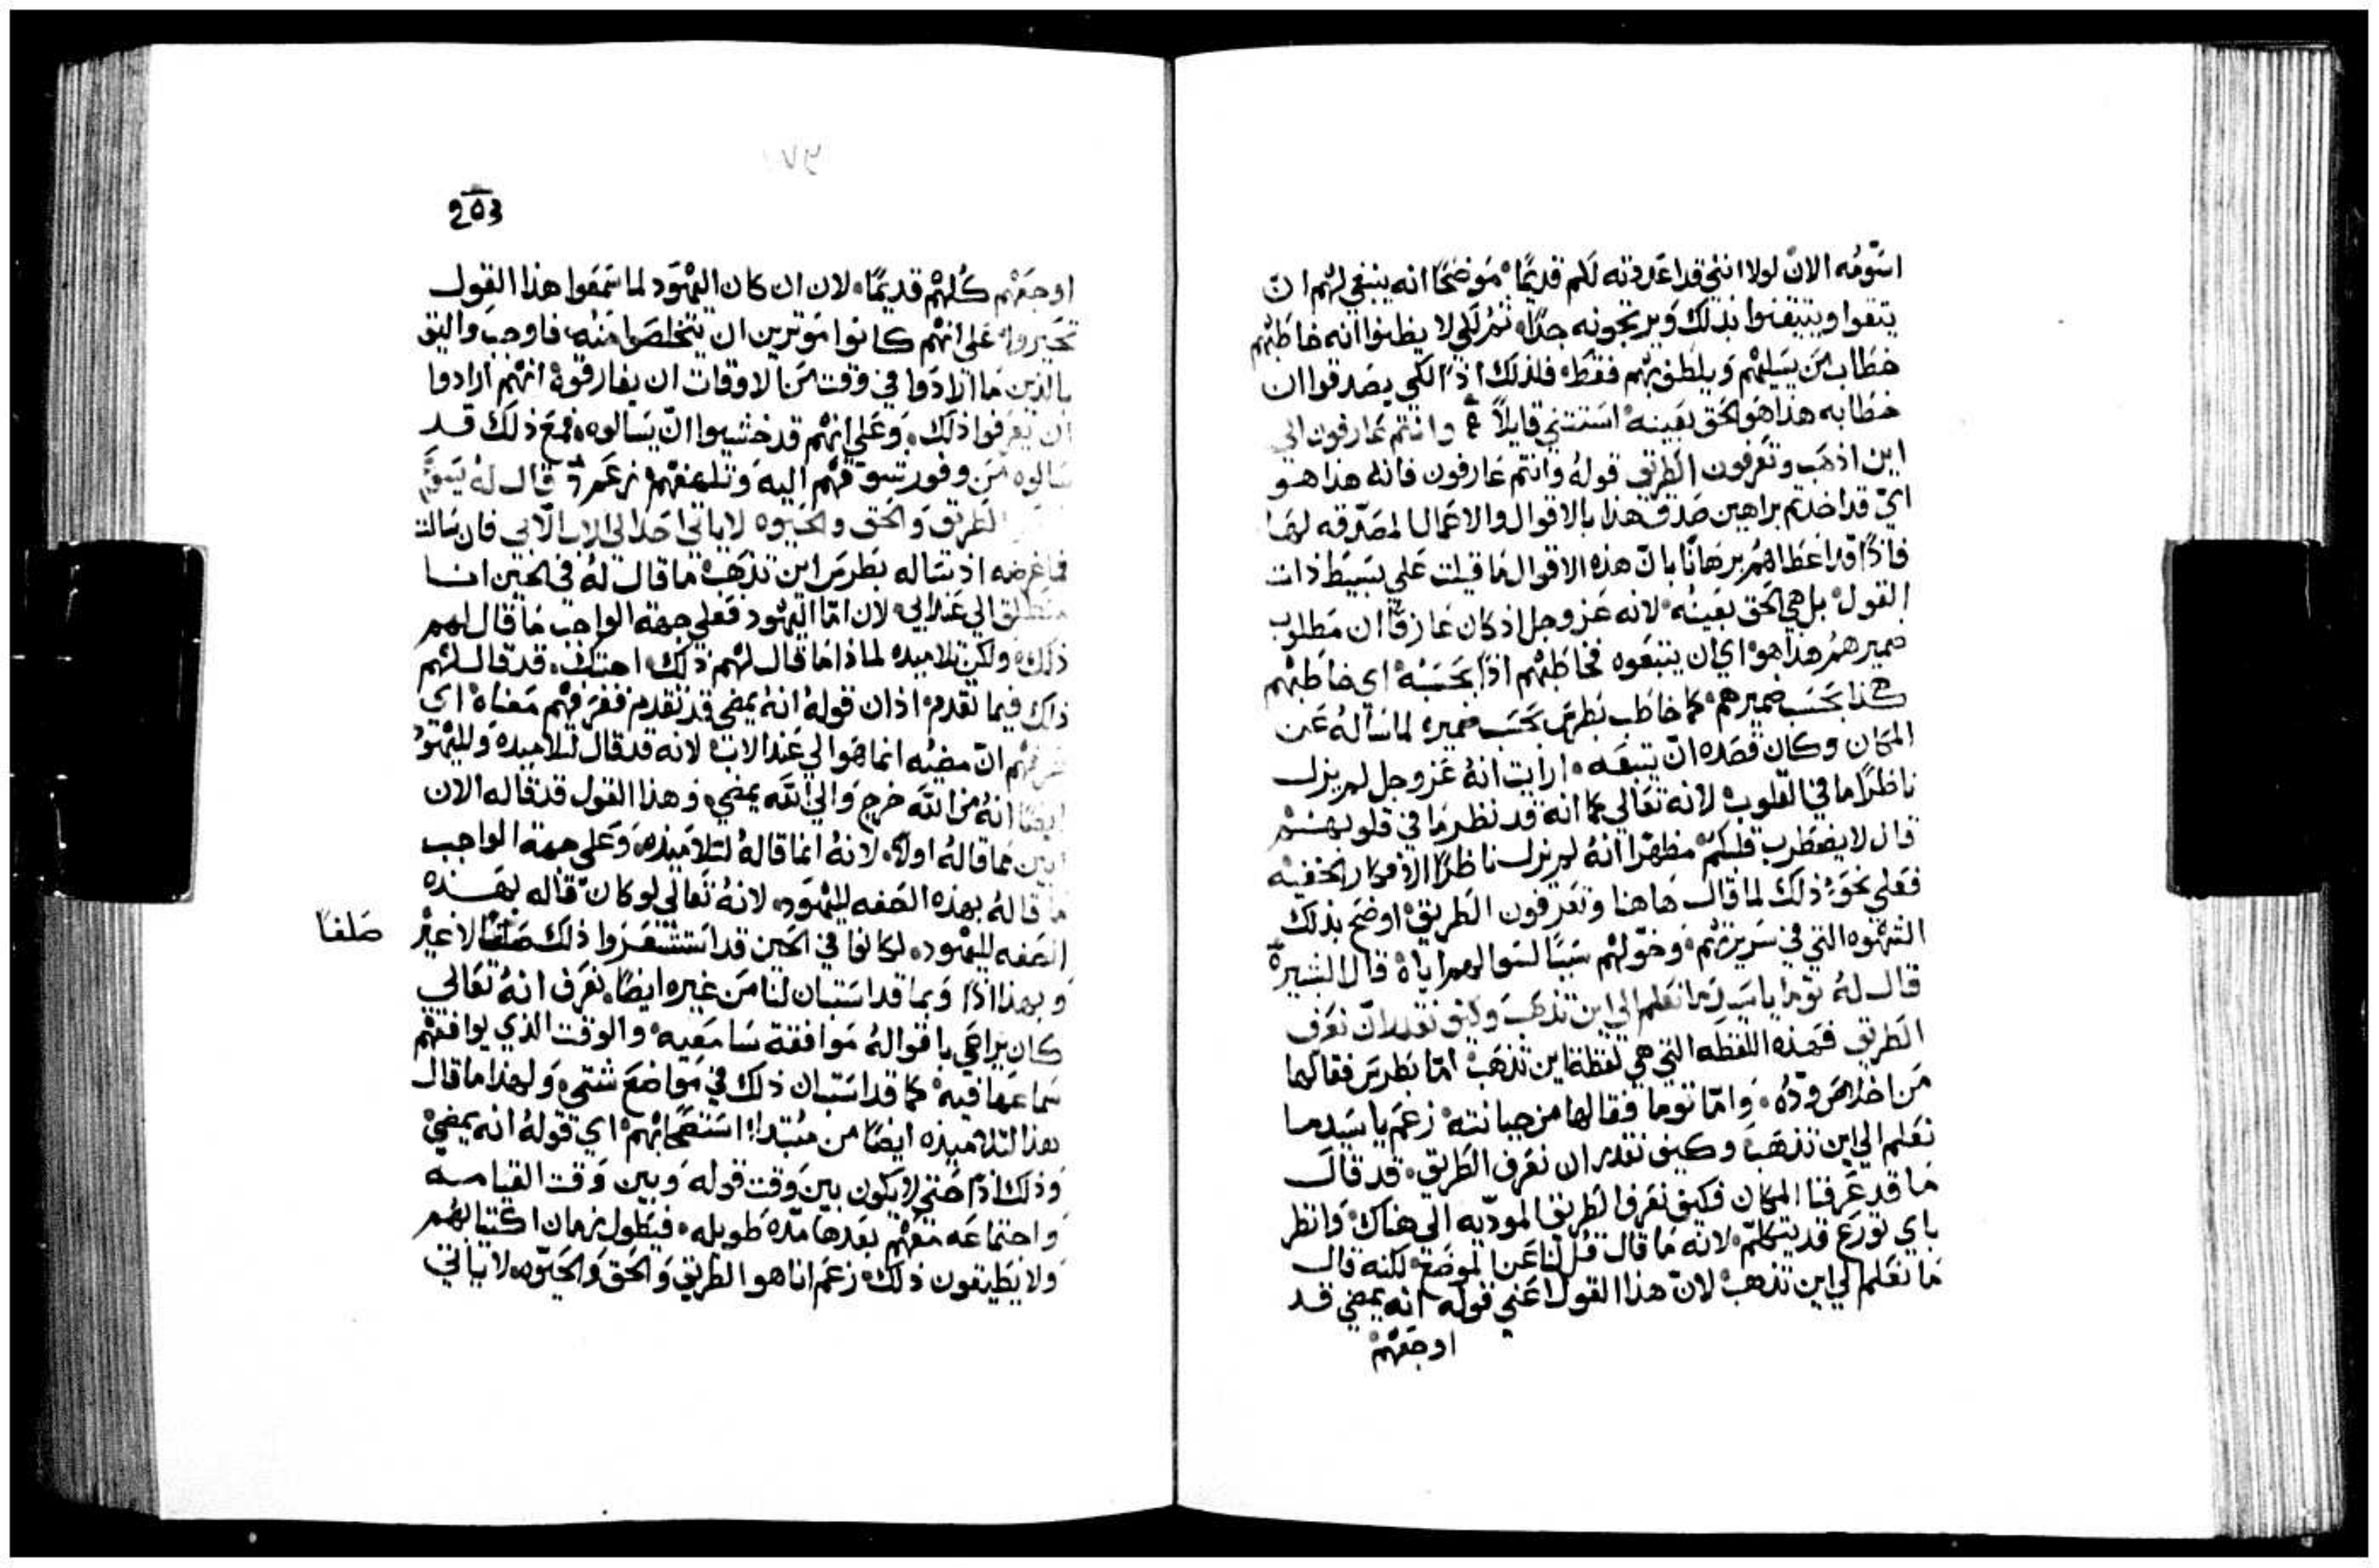 اسَوّمُه الانْ لولا انني قد اعَددته لَكم قديمًا مَوضحًا انه ينبغي لهم ان
يتقوا ويتيقنوا بذلك وَيرتجونه جدًا ثمُ لكي لا يظنوا انه خاطبهم
خطاب مَن يسَليهم وَيلطف بهم فقط فلذلك اذًا لكي يصَدقوا ان
خطابه هذا هَو الحَق بعَينه اسَتتني قايلاً وانتم عَارفون الي
اين اذهَب وتعَرفون الطريق قولهُ وانتم عَارفون فانه هذا هو
ايّ قد اخذتم براهين صَدق هذا بالاقوال والاعَمال المصَدّقه لهَا
فاذًا قد اعَطاهُم برهَانًا بانّ هذه الاقوال مَا قيلت عَلي بسَيط ذات
القول بل هي الحَق بعَينُه لانه عَز وجل اذ كان عَارفًا ان مَطلوب
ضميرهمُ هذا هو اي ان يتبعَوه فخاطبهُم اذًا بحَسَبه اي خاطبهم
هكذا بحَسَب ضميرهم كما خاطب بَطرسَ بحَسَب ضميره لما سَالهُ عَن
المكان وكان قصَده انّ يتبعَه ارايت انهُ عَز وجل لم يزل
ناظرًا ما في القلوب لانه تعَالي كما انه قد نظر مَا في قلوبهسَم
قال لا يضطرب قلبكم مظهرًا انهُ لم يزل ناظرًا الافكار الخفيه
فعَلي نحَو ذلك لما قال هَاهنا وتعَرفون الطريق اوضَح بذلك
الشهوه التي في سَريرتهم وخوّلهُم سَببًا لسَوالهمر اياهُ قال البشير
قال لهُ توما ياسَيد مَا نعَلم الي اين تذهَب وكيف نقدر انّ نعَرف
الطريق فهَذه اللفظه التي هي لفظة اين تذهَب امّا بَطرسَ فقالها
مَن اخلاصَ ودّهُ وامّا توما فقالها من جبانته زعَم ياسَيد مَا
نعَلم الي اين تذهَب وكيف نقدر ان نعَرف الطريق قد قالَ
مَا قد عَرفنا المكان فكيف نعَرف الطريق المودّيه الي هناك وَانظر
باي تورَع قد يتكلّم لانه مَا قال قلُ لنا عَن الموضَع لكنه قال
مَا نعَلم الي اين تذهب لانّ هذا القول اعَني قوله انه يمضي قد
اوجعَهُم
203
اوجعَهُم كلهُم قديمًا لان ان كان اليهوَد لما سَمعَوا هذا القول
تحَيروا عَلي انهُم كانوا مَوثرين ان يتخلصَوا منه فاوجب واليق
بالذين مَا ارادَوا في وقت مَن الاوقات ان يفارقوهُ انهُم ارادوا
ان يعَرفوا ذلك وعَلي انهُم قد خشيوا انّ يسَالوه فمعَ ذلك قد
سَالوه مَن وفور تشوقهُم اليه وَتلهفهُم زعَم قال لهُ يسَوَع
الطريق وَالحَق والحَيوه لاياتي احَد الي الاب الا بي فان سَالت
فما غرضه اذ سَاله بَطرسَ اين تذهَب ما قال لهُ في الحين انا
منطلق الي عَند ابي لان امّا اليهُود فعَلي جهة الواجب مَا قال لهم
ذلك ولكن تلاميده لماذا مَا قال لهُم ذلك احتكف قد قال لهُم
ذلك فيما تقدم اذ ان قولهُ انهُ يمضي قد تقدم فعَرفهُم مَعَناهُ اي
عَرفهُم انّ مضيُه انما هَو الي عَند الاب لانه قد قال لتلاميدهَ ولليهُود
ايضًا انهُ من اللّه خرج وَالي اللّه يمضي وهذا القول قد قاله الان
ابين مما قالهُ اولاً لانهُ انما قالهُ لتلاميذه وَعَلي جهة الواجب
مَا قالهُ بهذه الصَفه لليهُود لانهُ تعَالي لو كانّ قاله بهَذه
الصَفه لليهُود لكانوا في الحَين قد اسَتشعَروا ذلك صَلفًا لا غير
صَلفًا
وبهذا اذًا وَبما قد اسَتبان لنا مَن غيره ايضًا نعَرف انهُ تعَالي
كان يراعَي باقوالهُ مَوافقة سَامعَيه والوقت الذي يوافقهُم
سَماعَها فيه كما قد اسَتبان ذلك في مَواضعَ شتي وَلهذا ما قال
هذا لتلاميذه ايضًا من مُبتدا اسَتنصَحابهُم اي قولهُ انه يمضي
وَذلك اذًا حَتي لا يكون بين وَقت قوله وَبين وَقت القيامه
واجتماعَه معَهُم بعَدها مدّه طويله فيَطول زمان اكتيابهُم
ولا يَطيقون ذلك زعَم انا هو الطريق وَالحَق وَالحَيَوه لا ياتي